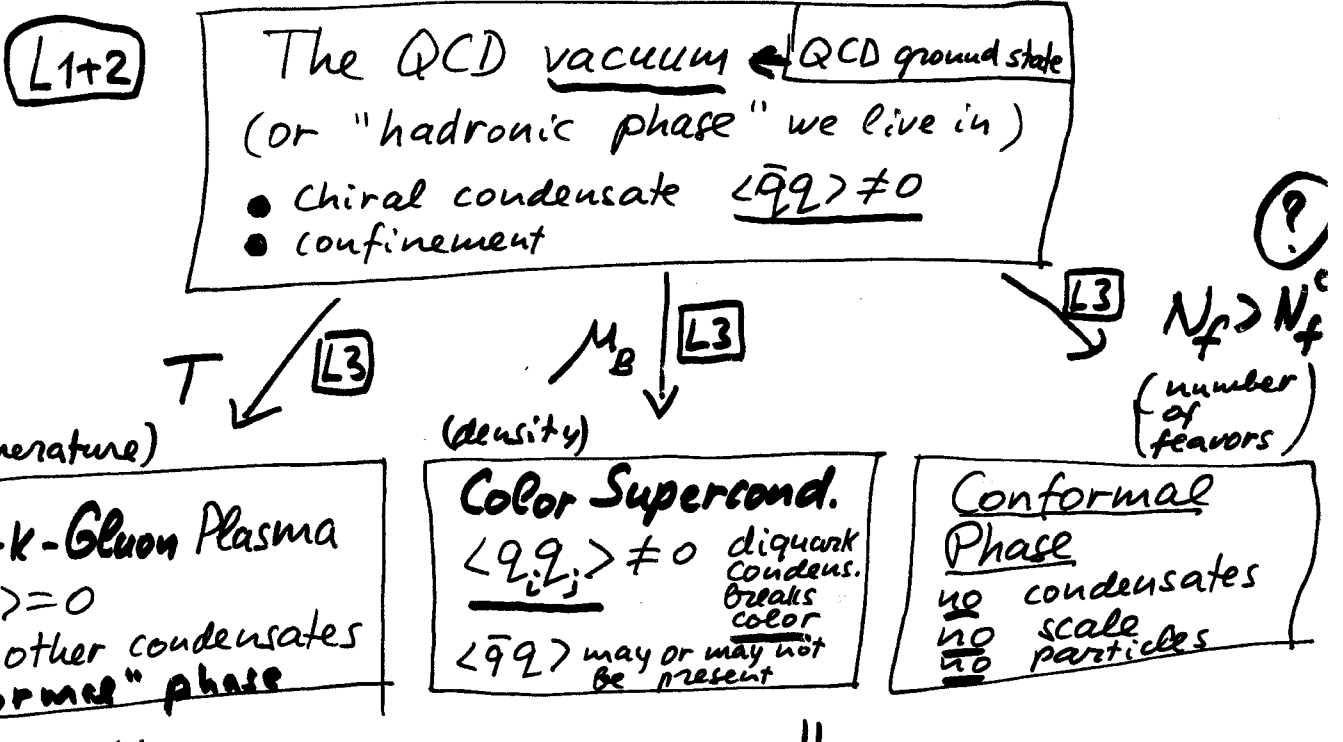 L1+2
The QCD vacuum
QCD ground state
(or "hadronic phase" we live in)
• Chiral condensate <q̄q> ≠ 0
• confinement
?
L3
L3
L3
T
μ_B
N_f > N_f^c
(number
of
feavors)
(density)
-Gluon Plasma
>=0
other condensates
phase
Color Supercond.
<q_i q_j> ≠ 0
diquark
condens.
breaks
color
<q̄q> may or may not
be present
Conformal
Phase
no condensates
no scale
no particles